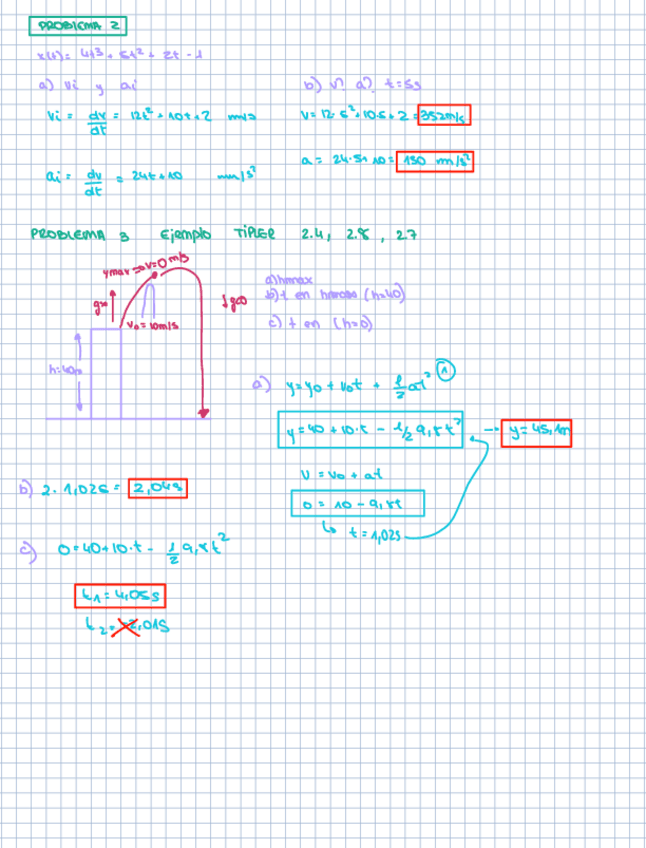 PROBLEMA 2
x(t) = 4t³ + 5t² + 2t - 1
a) vi y ai
b) v? a? t=5s
vi = dx/dt = 12t² + 10t + 2 m/s
v = 12·5² + 10·5 + 2 = 352m/s
ai = dv/dt = 24t + 10 m/s²
a = 24·5 + 10 = 130 m/s²
PROBLEMA 3 Ejemplo TIPLER 2.4, 2.8, 2.7
ymax → v=0 m/s
g<0
v₀ = 10m/s
h=40m
a) hmax
b) t en (h=40)
c) t en (h=0)
a) y = y₀ + v₀t + 1/2 at² ①
y = 40 + 10·t - 1/2 9,8t² → y = 45,1m
v = v₀ + at
0 = 10 - 9,8t
↳ t = 1,02s
b) 2·1,02s = 2,04s
c) 0 = 40 + 10·t - 1/2 9,8t²
t₁ = 4,05s
t₂ = -2,01s